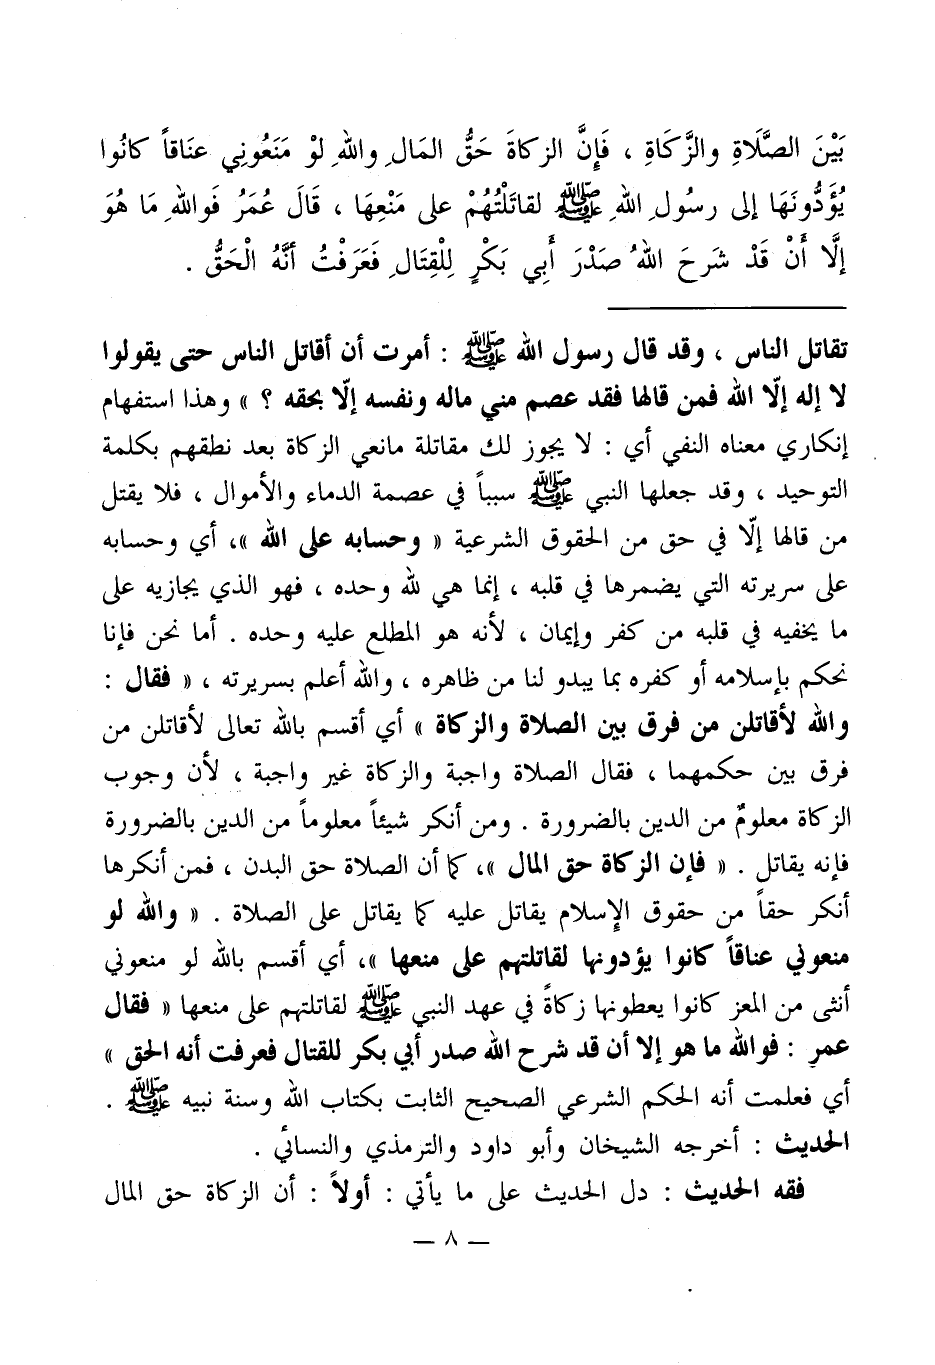 بَيْنَ الصَّلَاةِ والزَّكَاةِ ، فَإِنَّ الزكاةَ حَقُّ المَالِ واللهِ لوْ مَنَعُونِي عنَاقاً كانُوا
يُؤَدُّونَهَا إلى رسُولِ اللهِ ﷺ لقاتَلْتُهُمْ على مَنْعِهَا ، قَالَ عُمَرُ فَواللهِ مَا هُوَ
إلَّا أَنْ قَدْ شَرَحَ اللهُ صَدْرَ أَبِي بَكْرٍ لِلْقِتَالِ فَعَرَفْتُ أنَّهُ الْحَقُّ .
تقاتل الناس ، وقد قال رسول الله ﷺ : أمرت أن أقاتل الناس حتى يقولوا
لا إله إلّا الله فمن قالها فقد عصم مني ماله ونفسه إلّا بحقه ؟ » وهذا استفهام
إنكاري معناه النفي أي : لا يجوز لك مقاتلة مانعي الزكاة بعد نطقهم بكلمة
التوحيد ، وقد جعلها النبي ﷺ سبباً في عصمة الدماء والأموال ، فلا يقتل
من قالها إلّا في حق من الحقوق الشرعية « وحسابه على الله »، أي وحسابه
على سريرته التي يضمرها في قلبه ، إنما هي لله وحده ، فهو الذي يجازيه على
ما يخفيه في قلبه من كفر وإيمان ، لأنه هو المطلع عليه وحده . أما نحن فإنا
نحكم بإسلامه أو كفره بما يبدو لنا من ظاهره ، والله أعلم بسريرته ، « فقال :
والله لأقاتلن من فرق بين الصلاة والزكاة » أي أقسم بالله تعالى لأقاتلن من
فرق بين حكمهما ، فقال الصلاة واجبة والزكاة غير واجبة ، لأن وجوب
الزكاة معلومٌ من الدين بالضرورة . ومن أنكر شيئاً معلوماً من الدين بالضرورة
فإنه يقاتل . « فإن الزكاة حق المال »، كما أن الصلاة حق البدن ، فمن أنكرها
أنكر حقاً من حقوق الإسلام يقاتل عليه كما يقاتل على الصلاة . « والله لو
منعوني عناقاً كانوا يؤدونها لقاتلتهم على منعها »، أي أقسم بالله لو منعوني
أنثى من المعز كانوا يعطونها زكاةً في عهد النبي ﷺ لقاتلتهم على منعها « فقال
عمر : فوالله ما هو إلا أن قد شرح الله صدر أبي بكر للقتال فعرفت أنه الحق »
أي فعلمت أنه الحكم الشرعي الصحيح الثابت بكتاب الله وسنة نبيه ﷺ .
الحديث : أخرجه الشيخان وأبو داود والترمذي والنسائي .
فقه الحديث : دل الحديث على ما يأتي : أولاً : أن الزكاة حق المال
— ٨ —